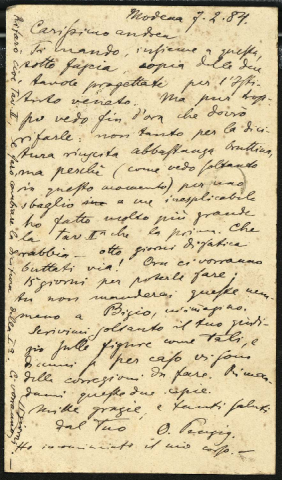 Modena 7.2.84.
Carissimo Andrea
Ti mando, insieme a questa,
sotto fascia, copia delle due
tavole progettate per l'Isti-
tuto veneto. Ma pur trop-
po vedo fin d'ora che dovrò
rifarle: non tanto per la dici-
tura riuscita abbastanza bruttina,
ma perchè (come vedo soltanto
in questo momento) per uno
sbaglio a me inesplicabile
ho fatto molto più grande
la tav II che la prima. Che
rabbia — otto giorni di fatica
buttati via! Ora ci vorranno
15 giorni per poterle fare;
tu non manderai queste nem-
meno a Bizio, m'imagino.
Scrivimi soltanto il tuo giudi-
zio sulle figure come tali, e
dimmi se per caso vi sono
delle correzioni da fare. Riman-
dami queste due copie.
mille grazie, e tanti saluti
dal Tuo O. Penzig
Ho incominciato il mio corso. —